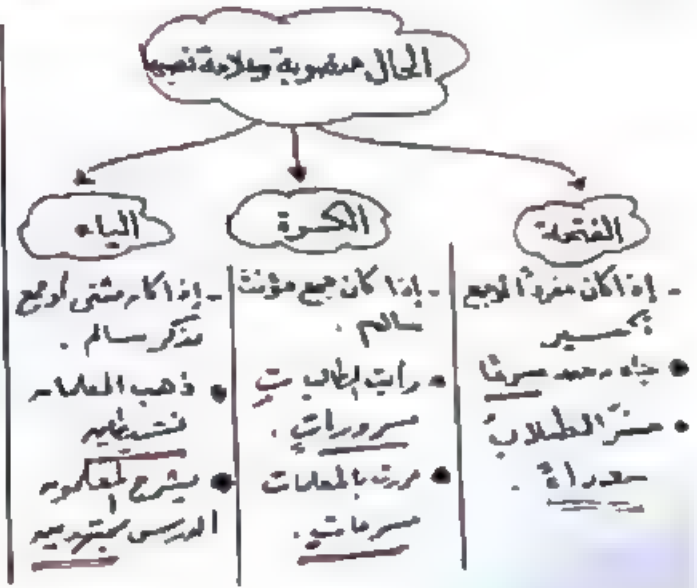 الحال منصوبة وعلامة نصبها
الفتحة
- إذا كان مفرداً أو جمع
تكسير
• جاء محمد مسرعًا
الطلاب
سعداء .
الكسرة
- إذا كان جمع مؤنث
سالم .
• رأيت الطالبات
مسرورات .
• مررت بالمعلمات
مسرعاتٍ .
الياء
- إذا كان مثنى أو جمع
مذكر سالم .
• ذهب المعلمان
نشيطين
• يشرح المعلمون
الدرس مبتسمين